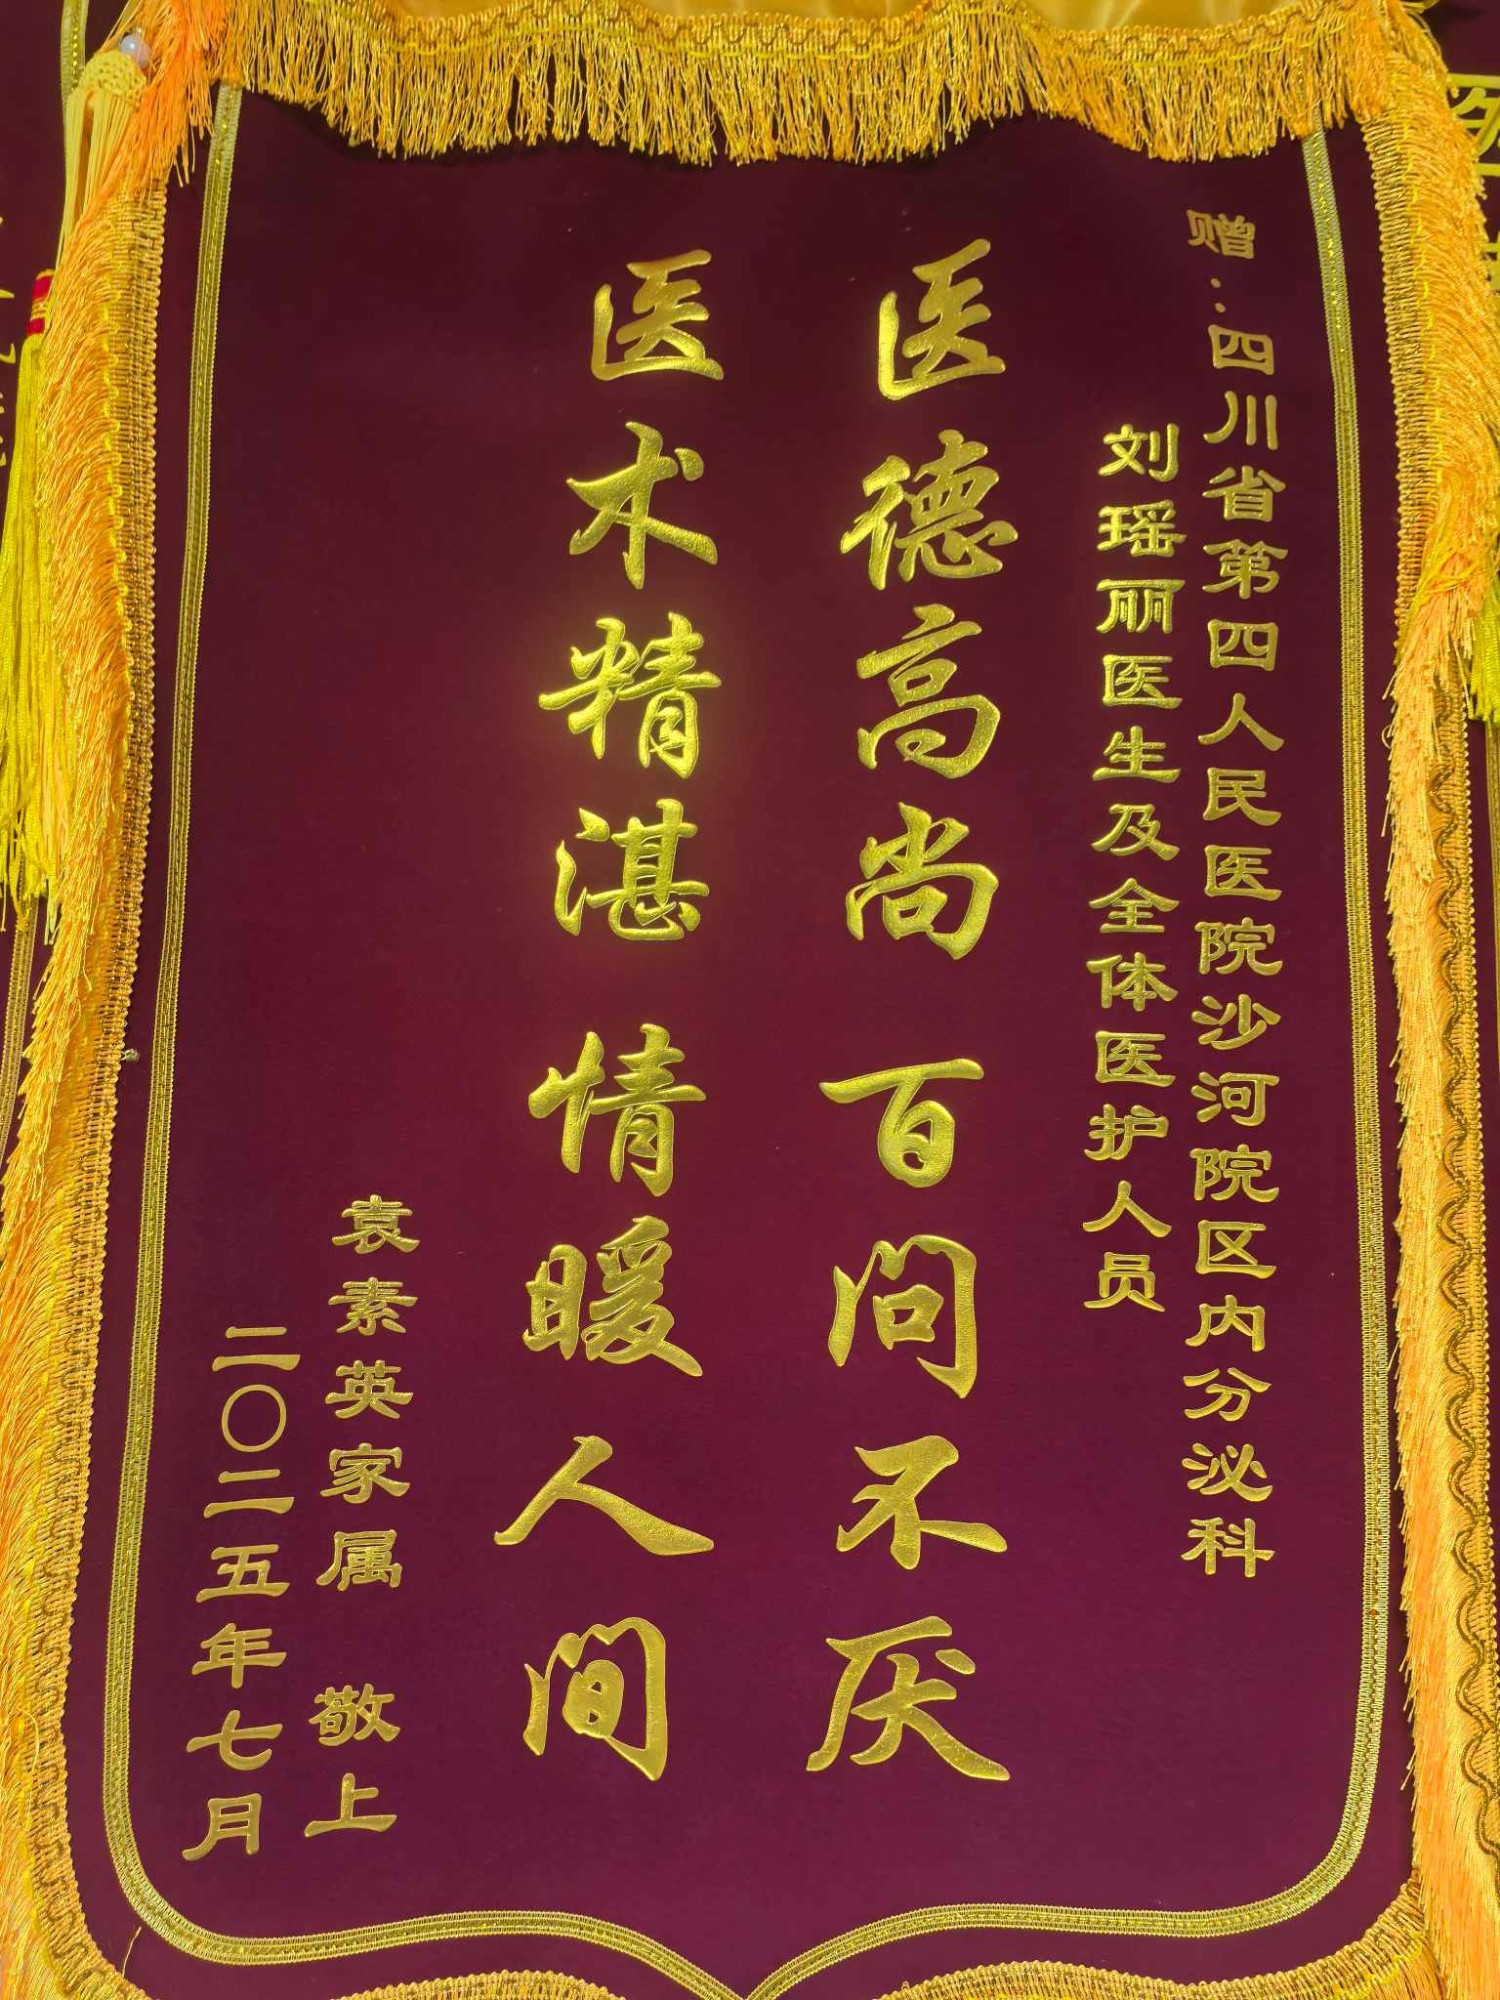 赠：四川省第四人民医院沙河院区内分泌科
刘瑶丽医生及全体医护人员
医德高尚 百问不厌
医术精湛 情暖人间
袁素英家属 敬上
二〇二五年七月